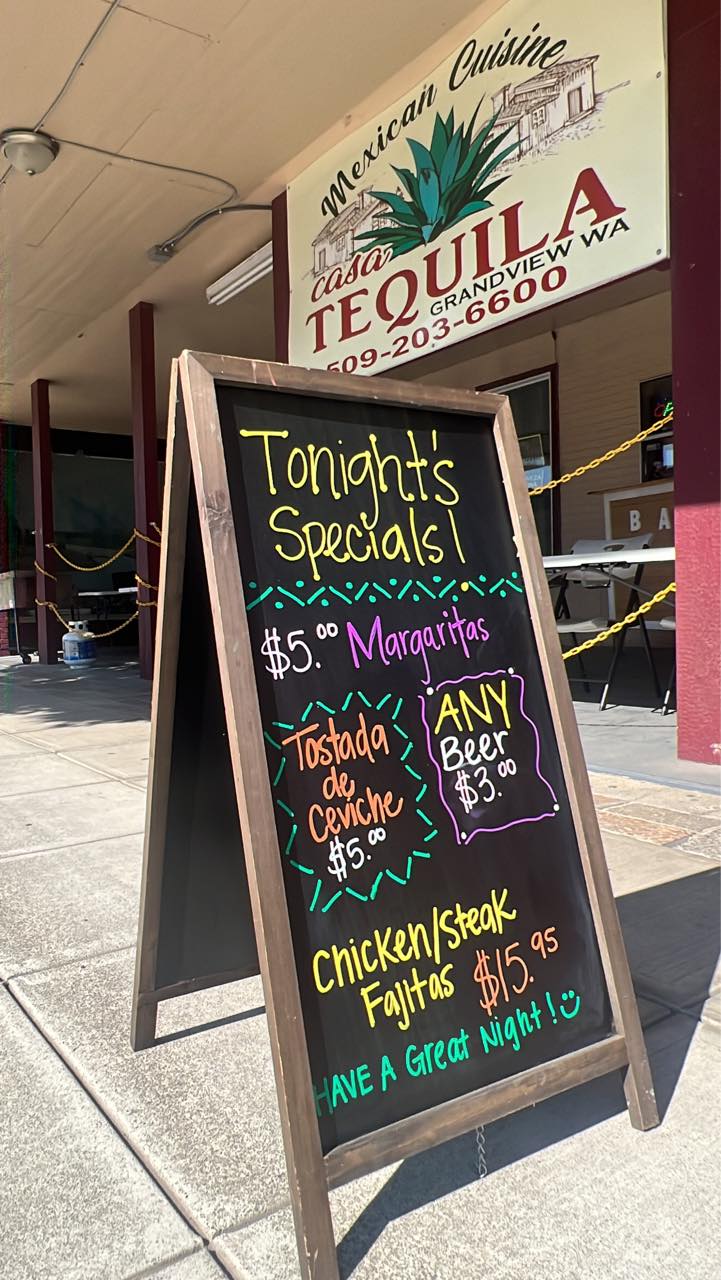 Mexican Cuisine
casa
TEQUILA
GRANDVIEW WA
509-203-6600
Tonight's
Specials!
$5.00 Margaritas
Tostada
de
Ceviche
$5.00
ANY
Beer
$3.00
Chicken/Steak
Fajitas $15.95
HAVE A Great Night! :)
BA